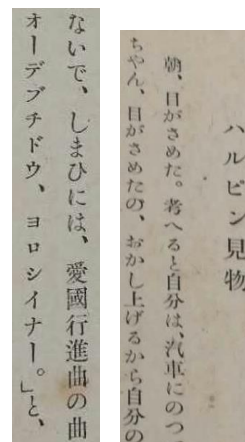 ハルビン見物
朝、目がさめた。考へると自分は、汽車にのつ
ちやん、目がさめたの、おかし上げるから自分の
ないで、しまひには、愛國行進曲の曲
オーデブチドウ、ヨロシイナー。」と、